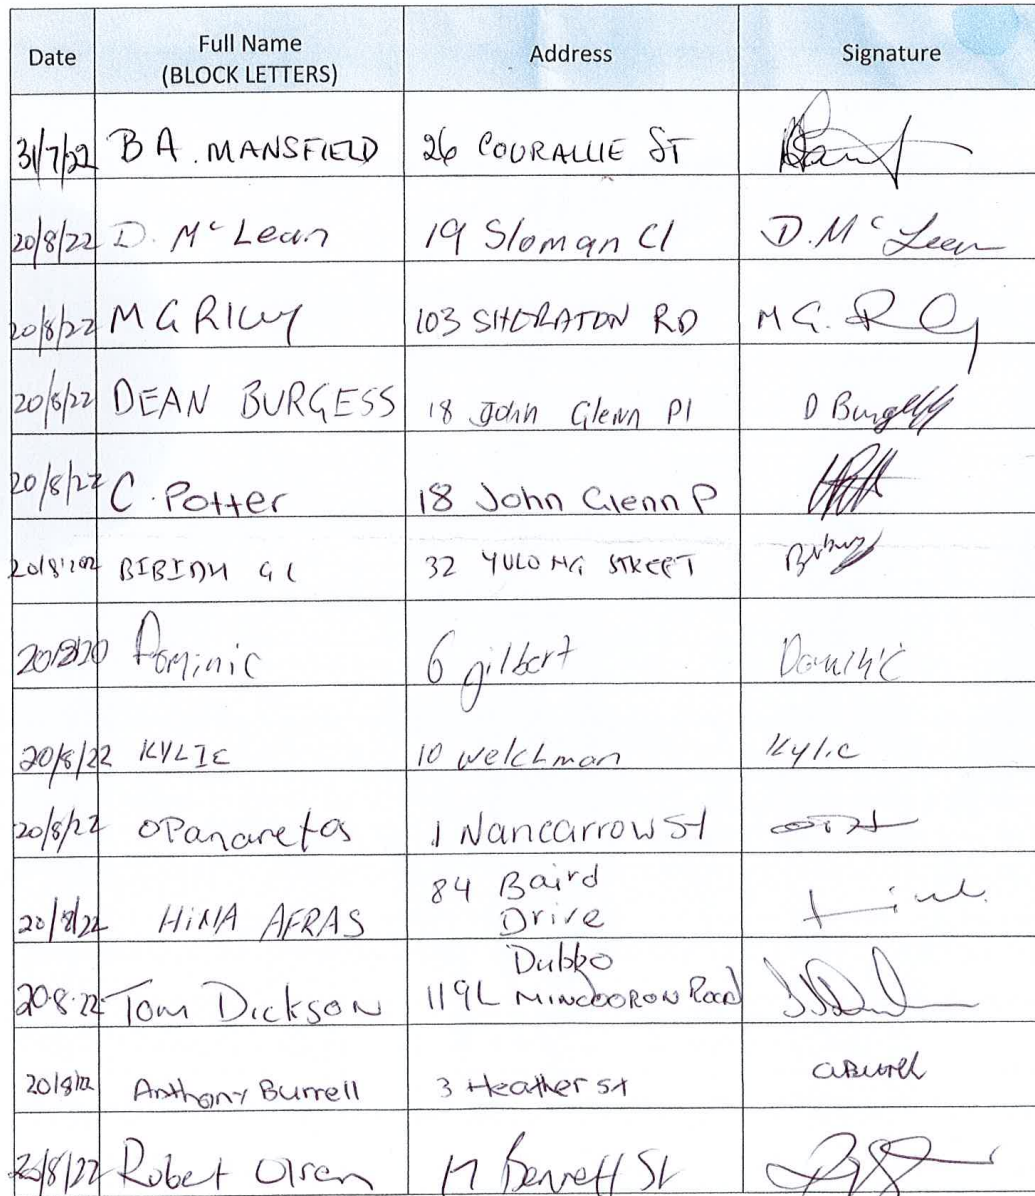 Date Full Name Address Signature
(BLOCK LETTERS)
31/7/22 B A. MANSFIELD 26 COURALLIE ST
20/8/22 D. McLean 19 Sloman Cl D. McLean
20/8/22 M G RILEY 103 SHERATON RD M G.
20/8/22 DEAN BURGESS 18 John Glenn Pl D Burgess
20/8/22 C. Potter 18 John Glenn P
BIBIDH 32 YULONG STREET
Dominic 6 gilbert Dominic
20/8/22 KYLIE 10 welchman Kylie
20/8/22 O Panaretos 1 Nancarrow St
84 Baird
20/8/22 HINA AFRAS Drive
Dubbo
20.8.22 Tom Dickson 119L Road
20/8/22 Anthony Burrell 3 Heather st aBurrell
20/8/22 Robert Olsen 17 Bennett St